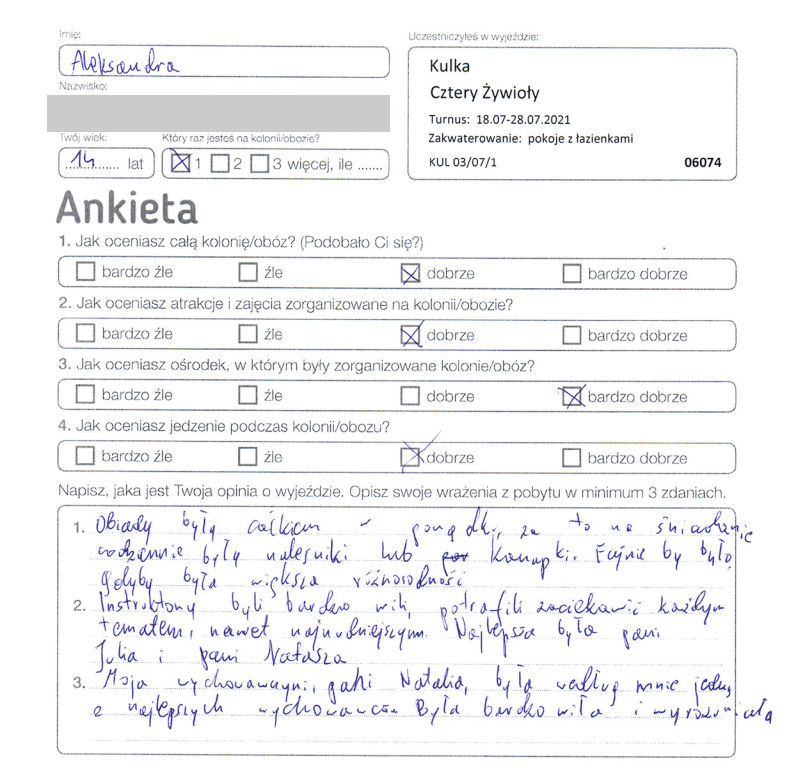 Imię:
Aleksandra
Nazwisko:
Twój wiek:
14 lat
Który raz jesteś na kolonii/obozie?
1 2 3 więcej, ile .......
Uczestniczyłeś w wyjeździe:
Kulka
Cztery Żywioły
Turnus: 18.07-28.07.2021
Zakwaterowanie: pokoje z łazienkami
KUL 03/07/1 06074
Ankieta
1. Jak oceniasz całą kolonię/obóz? (Podobało Ci się?)
bardzo źle źle dobrze bardzo dobrze
2. Jak oceniasz atrakcje i zajęcia zorganizowane na kolonii/obozie?
bardzo źle źle dobrze bardzo dobrze
3. Jak oceniasz ośrodek, w którym były zorganizowane kolonie/obóz?
bardzo źle źle dobrze bardzo dobrze
4. Jak oceniasz jedzenie podczas kolonii/obozu?
bardzo źle źle dobrze bardzo dobrze
Napisz, jaka jest Twoja opinia o wyjeździe. Opisz swoje wrażenia z pobytu w minimum 3 zdaniach.
1. Obiady były całkiem w porządku, za to na śniadanie
codziennie były naleśniki lub kanapki. Fajnie by było,
gdyby była większa różnorodność
2. Instruktorzy byli bardzo mili, potrafili zaciekawić każdym
tematem, nawet najnudniejszym. Najlepsza była pani
Julia i pani Natasza
3. Moja wychowawczyni, pani Natalia, była według mnie jedną
z najlepszych wychowawców. Była bardzo miła i wyrozumiała